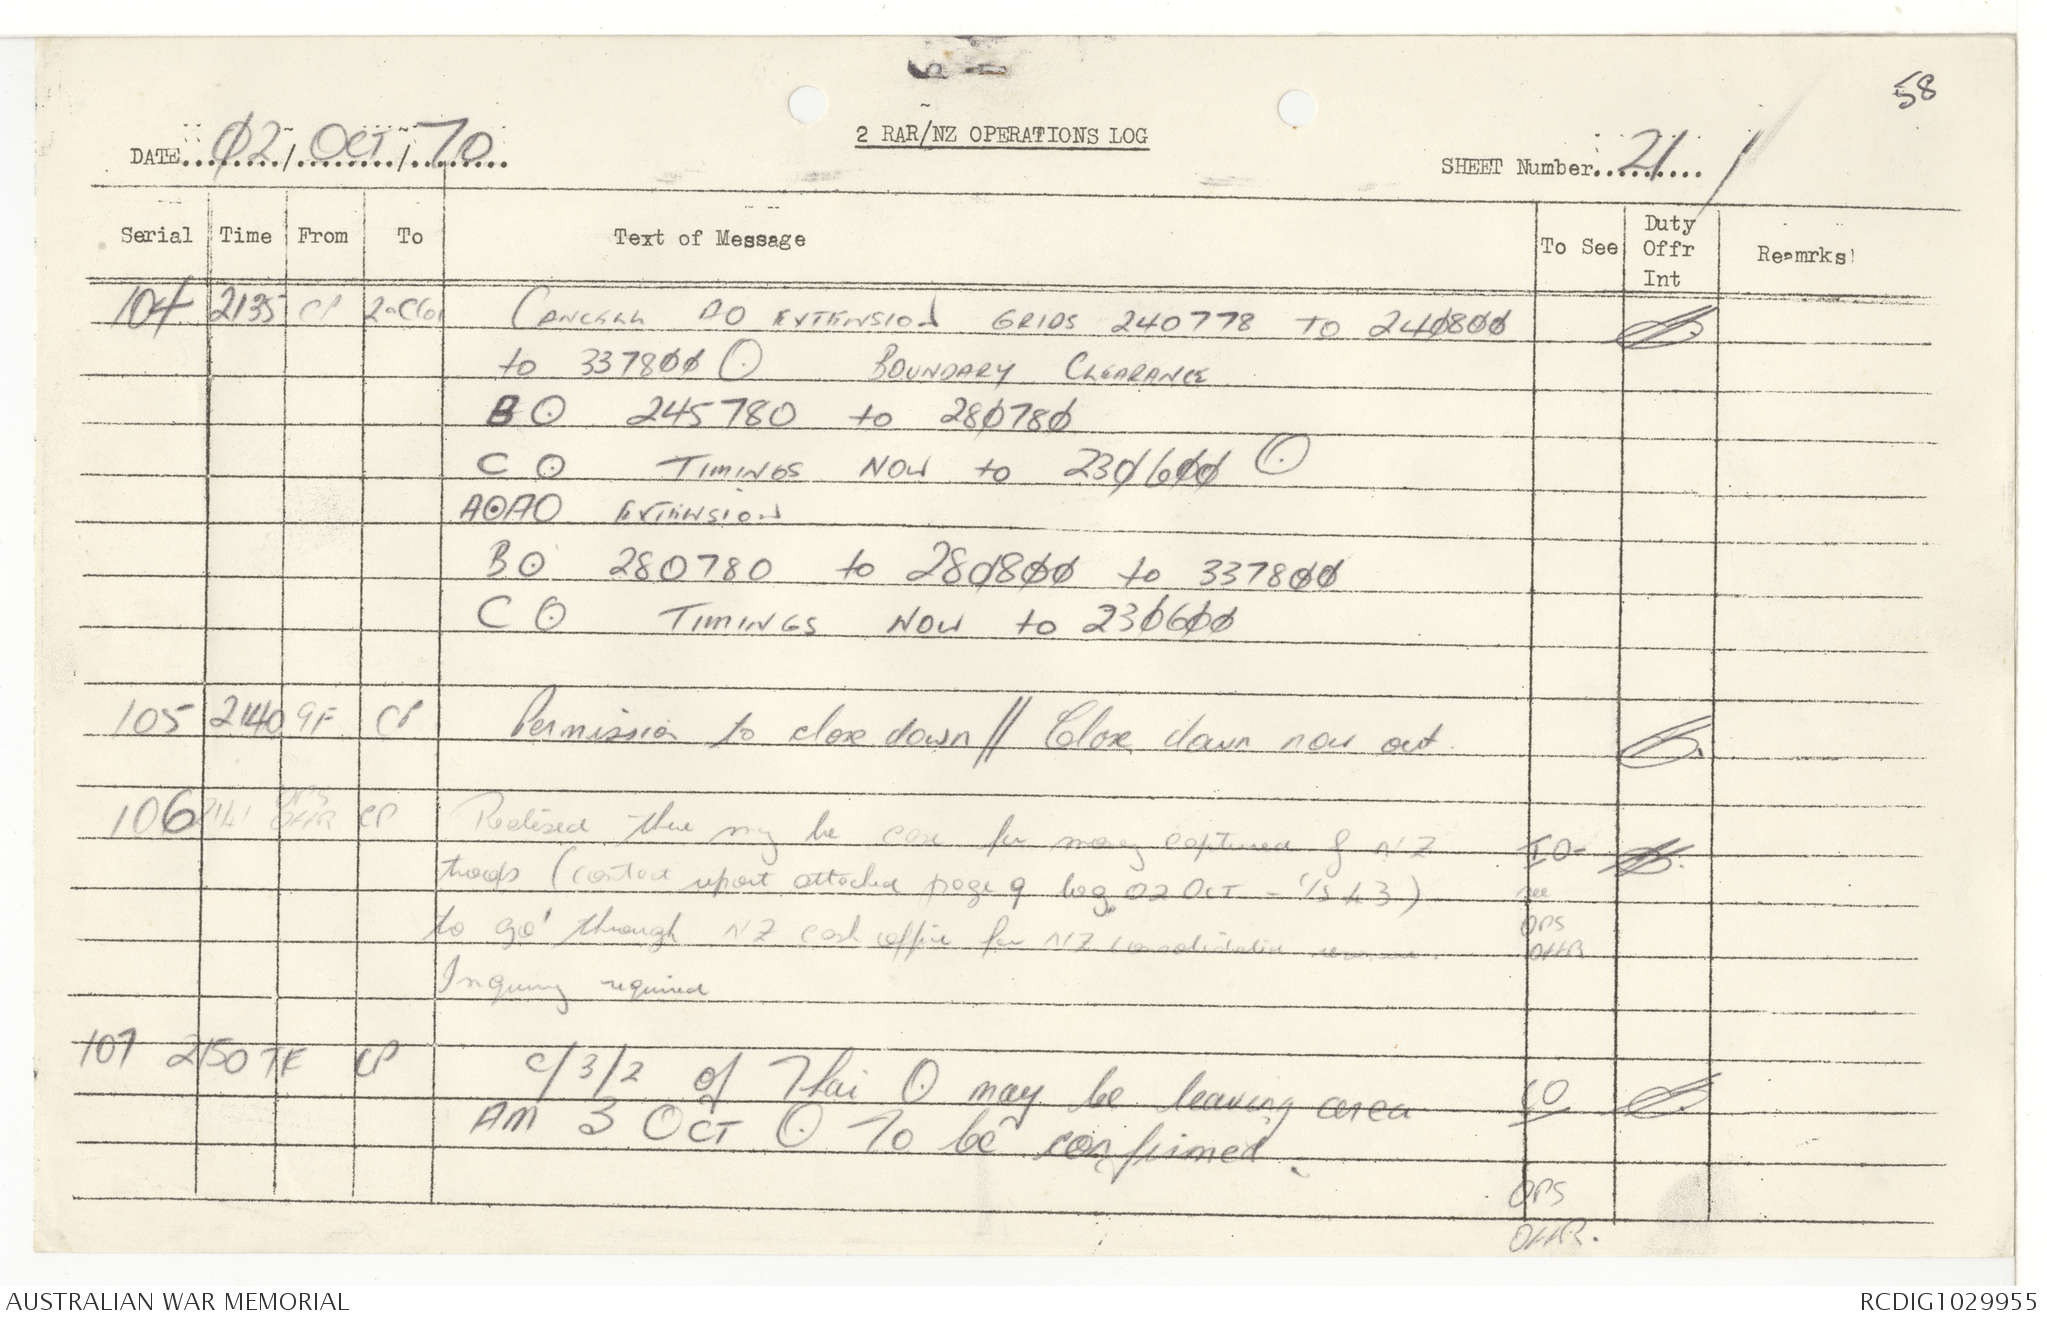 58
DATE 02/OCT/70
2 RAR/NZ OPERATIONS LOG
SHEET Number 21
Serial Time From To Text of Message To See Duty Offr Int Reamrks
104 2135 CP CANCELL AO EXTENSION GRIDS 240778 TO 240800
to 337800 ⊙ BOUNDARY CLEARANCE
B ⊙ 245780 to 280780
C ⊙ TIMINGS NOW to 230600 ⊙
A⊙AO EXTENSION
B ⊙ 280780 to 280800 to 337800
C ⊙ TIMINGS NOW to 230600
105 2140 9F CP Permission to close down // Close down now out
106 2141 OPS OFFR CP Realised there may be case for money captured by NZ IO
troops (contact report attached page 9 log 02 OCT - 1543) see
to go through NZ cash office for NZ consolidation revenue. OPS OFFR
Inquiry required
107 2150 TF CP C/3/2 of Thai ⊙ may be leaving area CO
AM 3 OCT ⊙ To be confirmed.
OPS
OFFR.
AUSTRALIAN WAR MEMORIAL
RCDIG1029955